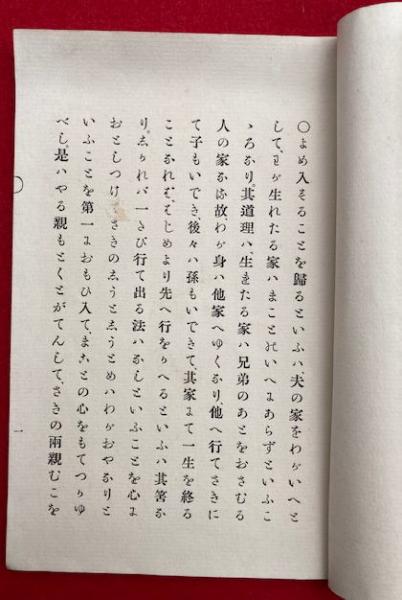 〇よめ入することを歸るといふハ、夫の家をわがいへと
して、わが生れたる家ハまことのいへにあらずといふこ
ゝろなり。其道理ハ、生れたる家ハ兄弟のあとをおさむる
人の家なる故、わが身ハ他家へゆくなり、他へ行てさきに
て子もいでき、後々ハ孫もいできて、其家にて一生を終る
ことなれば、はじめより先へ行をかへるといふハ其筈な
り。しかれバ一たび行て出る法ハなしといふことを心に
おとしつけ、さきのしうとしうとめハわがおやなりと
いふことを第一におもひ入て、まことの心をもてつかゆ
べし。是ハやる親もとくとがてんして、さきの兩親むこを
一